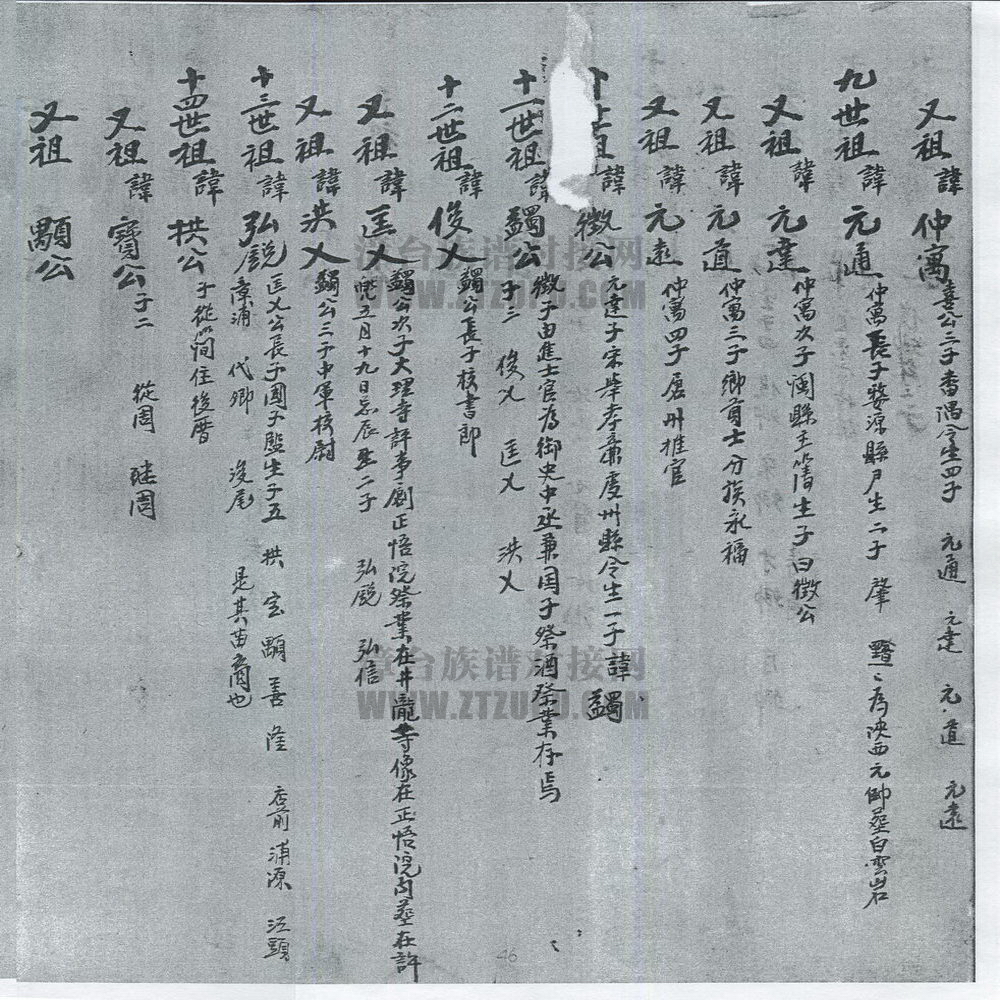 又祖諱 仲寓 喜公三子番隅令生四子 元通 元達 元道 元遠
九世祖諱 元通 仲寓長子婺源縣尹生二子 肇 為陝西元帥葬白雲岩
又祖諱 元達 仲寓次子閩縣主簿生子曰徵公
又祖諱 元道 仲寓三子鄉貢士分族永福
又祖諱 元遠 仲寓四子 州推官
十世祖諱 徵公 元達子宋舉孝廉虔州縣令生一子諱蠲
十一世祖諱 蠲公 徵子由進士官為御史中丞兼国子祭酒祭業存焉
子三 俊乂 匡乂 洪乂
十二世祖諱 俊乂 蠲公長子校書郎
又祖諱 匡乂 蠲公次子大理寺評事創正悟院祭業在井隴等像在正悟院内葬在許
五月十九日忌辰生二子 弘 弘信
又祖諱 洪乂 蠲公三子中軍校尉
十三世祖諱 弘 匡乂公長子國子監生子五 拱 宝 顒 善 隆 店前 浦源 江頭
浦 代卿 後尾 是其苗裔也
十四世祖諱 拱公 子從簡住後厝
又祖諱 寶公 子二 從周 継周
又祖 顒公
46
章台族谱对接网
WWW.ZTZUPU.COM
章台族谱对接网
WWW.ZTZUPU.COM